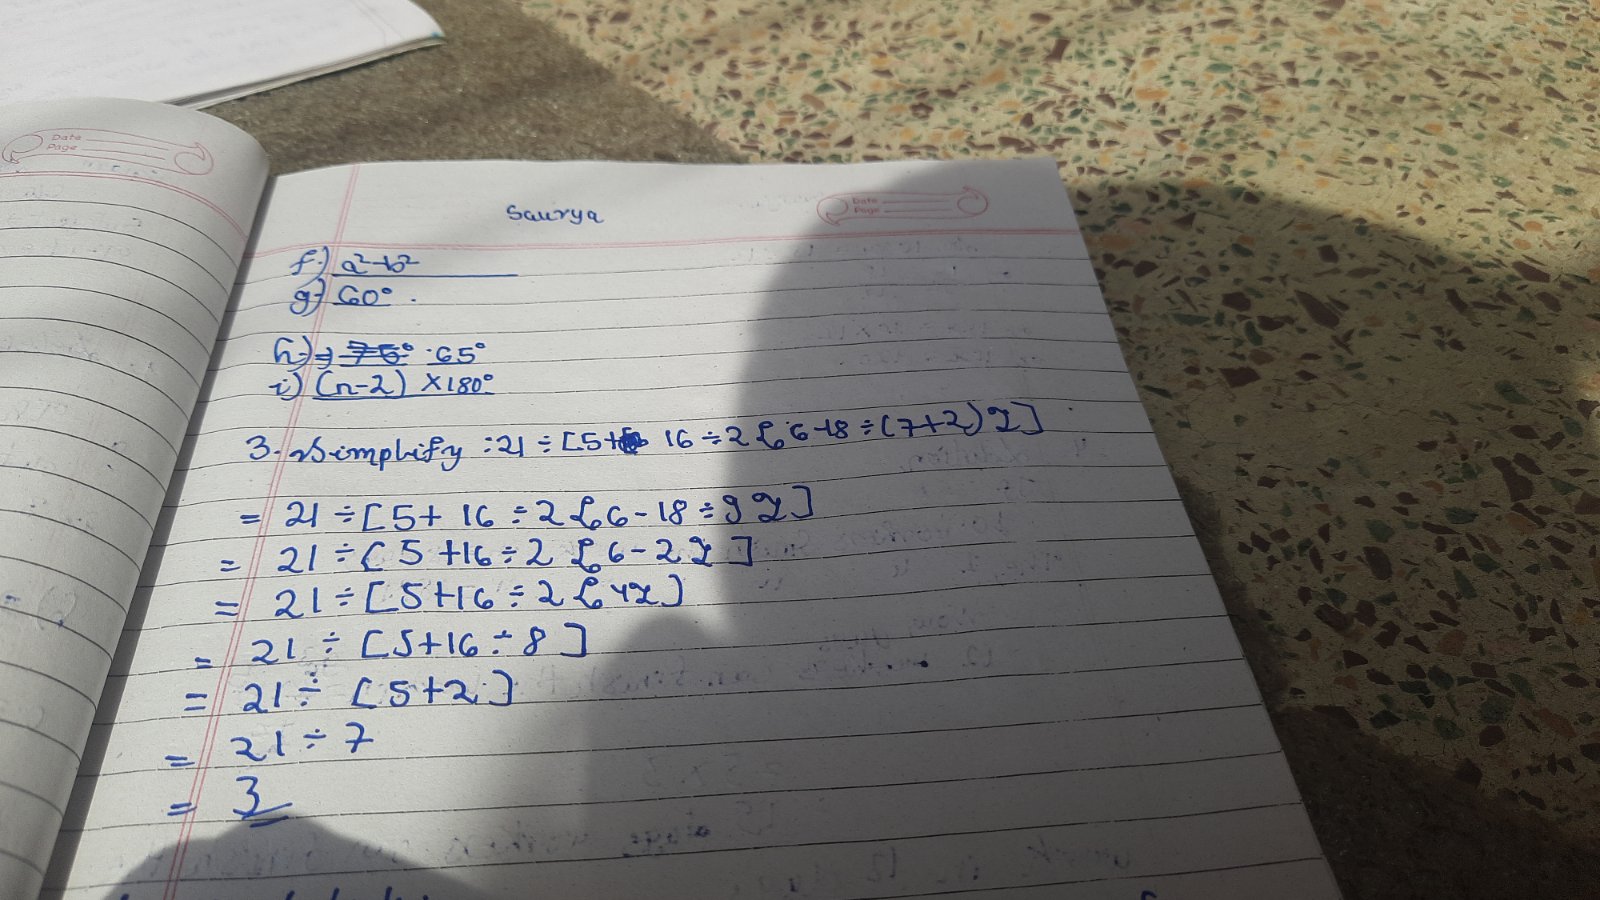 Date
Page
Saurya
Date
Page
f.) a²-b²
g.) 60°.
h.) 75° 65°
i) (n-2) ×180°
3. Simplify :21 ÷ [5+ 16 ÷ 2 { 6-18 ÷ (7+2) }]
= 21 ÷ [ 5+ 16 ÷ 2 { 6 - 18 ÷ 9 } ]
= 21 ÷ [ 5 +16 ÷ 2 { 6 - 2 } ]
= 21 ÷ [ 5+16 ÷ 2 { 4 } ]
= 21 ÷ [5+16 ÷ 8 ]
= 21 ÷ [ 5+2 ]
= 21 ÷ 7
= 3